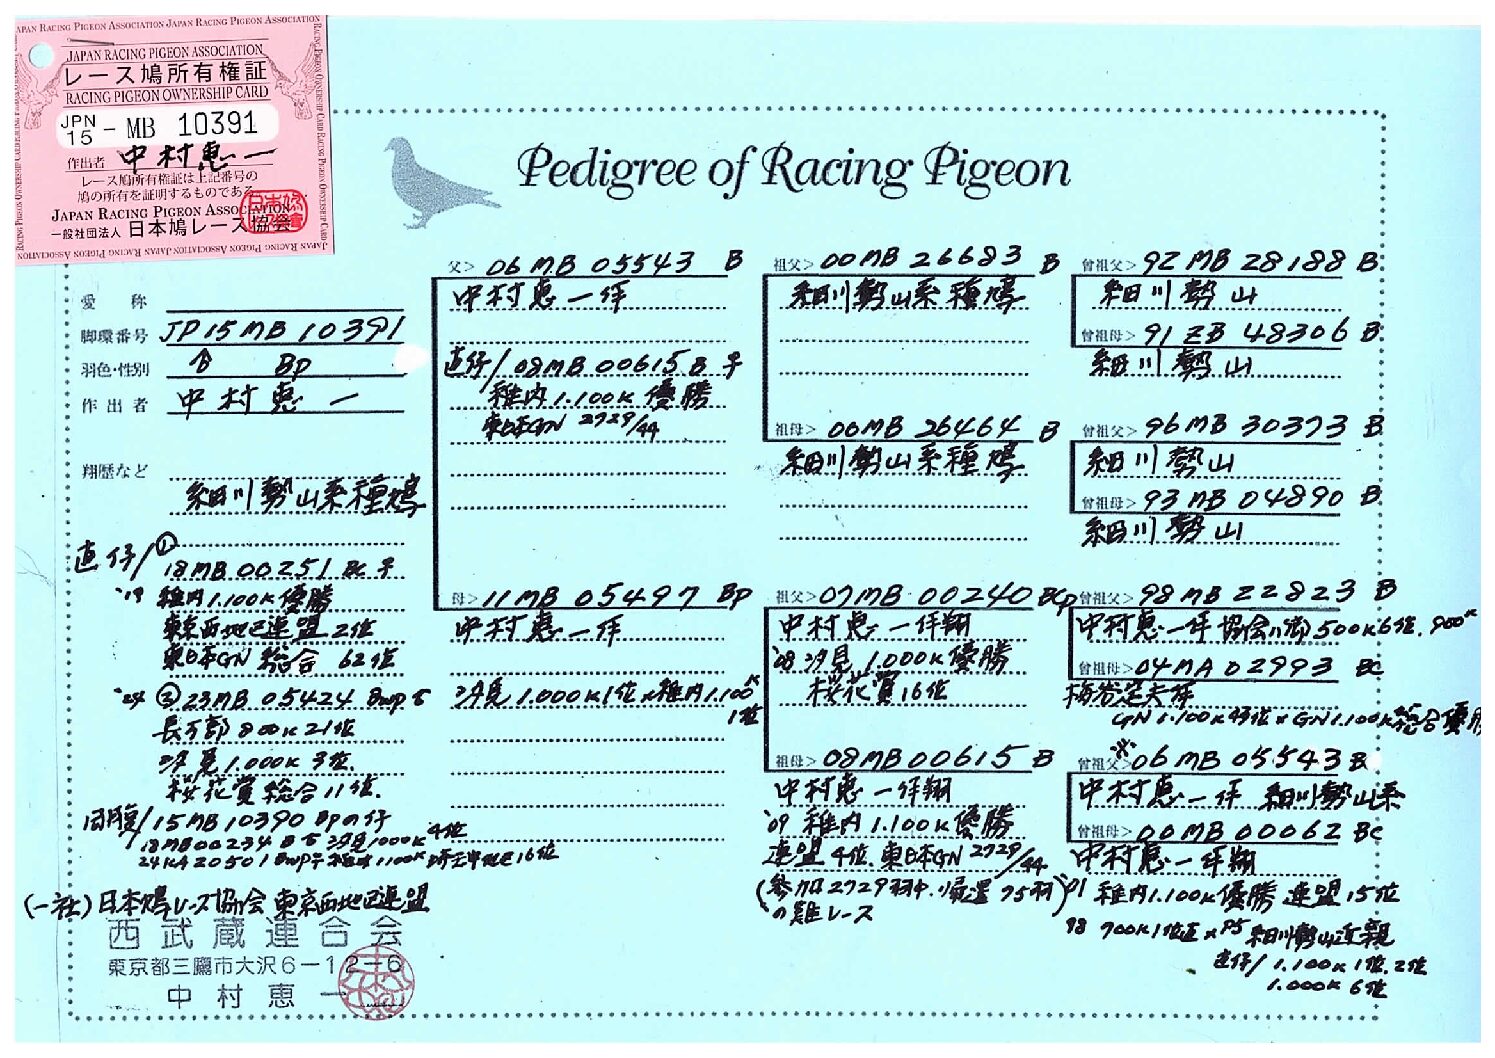 JAPAN RACING PIGEON ASSOCIATION
レース鳩所有権証
RACING PIGEON OWNERSHIP CARD
JPN
15 - MB 10391
作出者 中村恵一
レース鳩所有権証は上記番号の
鳩の所有を証明するものである
JAPAN RACING PIGEON ASSOCIATION
一般社団法人 日本鳩レース協会
Pedigree of Racing Pigeon
愛称
脚環番号 JP15MB10391
羽色・性別 B BP
作出者 中村恵一
翔歴など
細川勢山系種鳩
直仔/① 18MB00251 BC 子
'19 稚内1.100K優勝
東京西地区連盟2位
東日本GN 総合 62位
'24 ②23MB05424 BWP
800K21位
汐見1.000K3位
桜花賞総合11位
同腹/15MB10390 BPの仔
18MB00234 B 汐見1000K4位
24KA20501 BWP
(一社)日本鳩レース協会 東京西地区連盟
西武蔵連合会
東京都三鷹市大沢6-12-6
中村恵一
父> 06MB05543 B
中村恵一作
直仔/08MB00615 B 子
稚内1.100K優勝
東日本GN 2729/44
母> 11MB05497 BP
中村恵一作
汐見1.000K1位×稚内1.100K
1位
祖父> 00MB26683 B
細川勢山系種鳩
祖母> 00MB26464 B
細川勢山系種鳩
祖父> 07MB00240 BCP
中村恵一作翔
'08汐見1.000K優勝
桜花賞16位
祖母> 08MB00615 B
中村恵一作翔
'09 稚内1.100K優勝
連盟4位.東日本GN 2729/44
(参加2729羽中.帰還75羽)
の難レース
曾祖父> 92MB28188 B
細川勢山
曾祖母> 91ZB48306 B
細川勢山
曾祖父> 96MB30373 B
細川勢山
曾祖母> 93MB04890 B
細川勢山
曾祖父> 98MB22823 B
中村恵一作 協会 500K6位.900K
曾祖母> 04MA02993 BC
GN1.100K43位×GN1.100K総合優勝
曾祖父> ※06MB05543 B
中村恵一作 細川勢山系
曾祖母> 00MB00062 BC
中村恵一作翔
稚内1.100K優勝 連盟15位
98 700K1位 × 細川勢山近親
直仔/1.100K1位.2位
1.000K6位